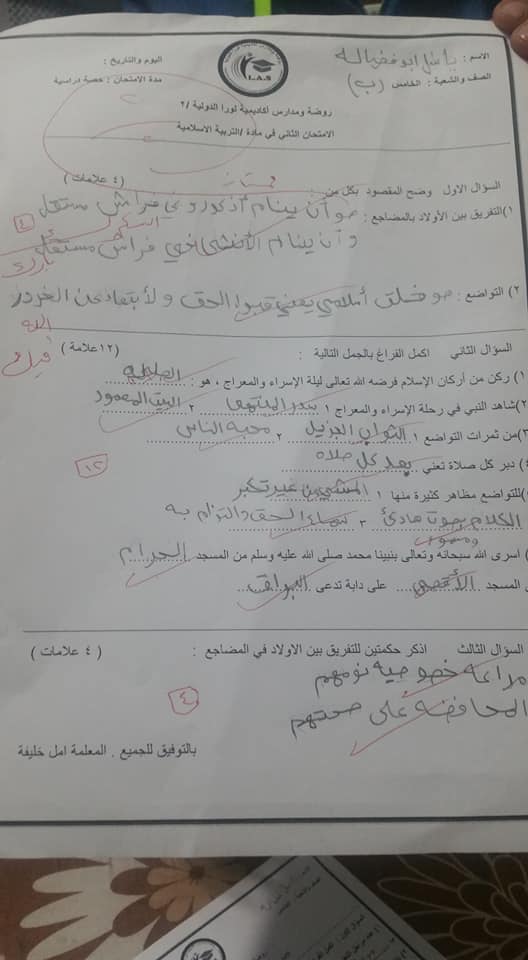 الاسم : باسل ابو فضاله
اليوم والتاريخ :
الصف والشعبة : الخامس (ب)
مدة الامتحان : حصة دراسية
I.A.S
روضة ومدارس اكاديمية لورا الدولية /٢
الامتحان الثاني في مادة /التربية الاسلامية
ممتاز
السؤال الاول وضح المقصود بكل من : (٤ علامات)
١)التفريق بين الأولاد بالمضاجع : هو أن ينام أذكور في فراش مستقل
٤
وأن ينام الأنثى في فراش مستقل
بارك
٢) التواضع : هو خلق أسلامي يعني قبول الحق ولأبتعاد عن الغرور
الله
فيك
السؤال الثاني اكمل الفراغ بالجمل التالية : (١٢علامة)
١) ركن من أركان الإسلام فرضه الله تعالى ليلة الإسراء والمعراج ، هو : الصلاة
٢)شاهد النبي في رحلة الإسراء والمعراج ١ سدر المنتهى ٢ البيت المعمور
٣)من ثمرات التواضع ١ الثواب الجزيل ٢ محبة الناس
) دبر كل صلاة تعني بعد كل صلاه
١٢
)للتواضع مظاهر كثيرة منها ١ المشي من غير تكبر
الكلام بصوت هادئ ٣ الحق والتزام به
) اسرى الله سبحانه وتعالى بنبينا محمد صلى الله عليه وسلم من المسجد الحرام
المسجد الأقصى على دابة تدعى البراق
السؤال الثالث اذكر حكمتين للتفريق بين الاولاد في المضاجع : (٤ علامات)
مراعة خصوصية نومهم
٤
المحافضه على صحتهم
بالتوفيق للجميع . المعلمة امل خليفة